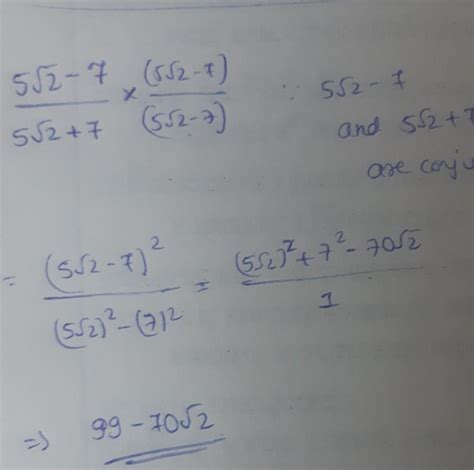 (5√2-7)/(5√2+7) × (5√2-7)/(5√2-7) ∵ 5√2-7
and 5√2+7
are conju
= (5√2-7)²/((5√2)²-(7)²) = ((5√2)²+7²-70√2)/1
⇒ 99-70√2